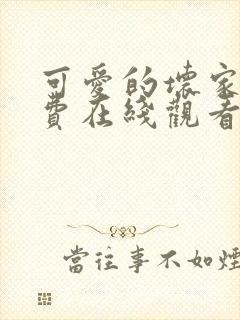 可愛的壞家
費在綫觀看
當往事不如煙